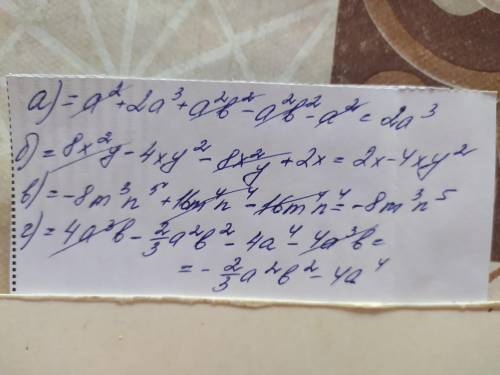 а) = a² + 2a³ + a²b² - a²b² - a² = 2a³
б) = 8x²y - 4xy² - 8x²y + 2x = 2x - 4xy²
в) = -8m³n⁵ + 16m⁴n⁴ - 16m⁴n⁴ = -8m³n⁵
г) = 4a³b - 2/3 a²b² - 4a⁴ - 4a³b =
= - 2/3 a²b² - 4a⁴